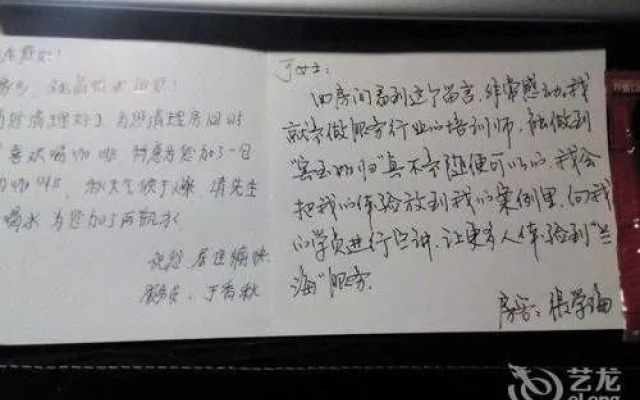 生您好!
为您清理好了,为您清理房间时
喜欢喝咖啡,特意为您加了一包
咖啡,秋天气候干燥,请先生
喝水 为您加了两瓶水
祝您 居住愉快
服务员:丁香秋
丁女士:
回房间看到这个留言,非常感动。我
就是做服务行业的培训师,能做到
“宾至如归”真不是随便可以的,我会
把我的体验放到我的案例里,向我
的学员进行宣讲,让更多人体验到“兰
海”服务。
房客:张学海
艺龙
eLong